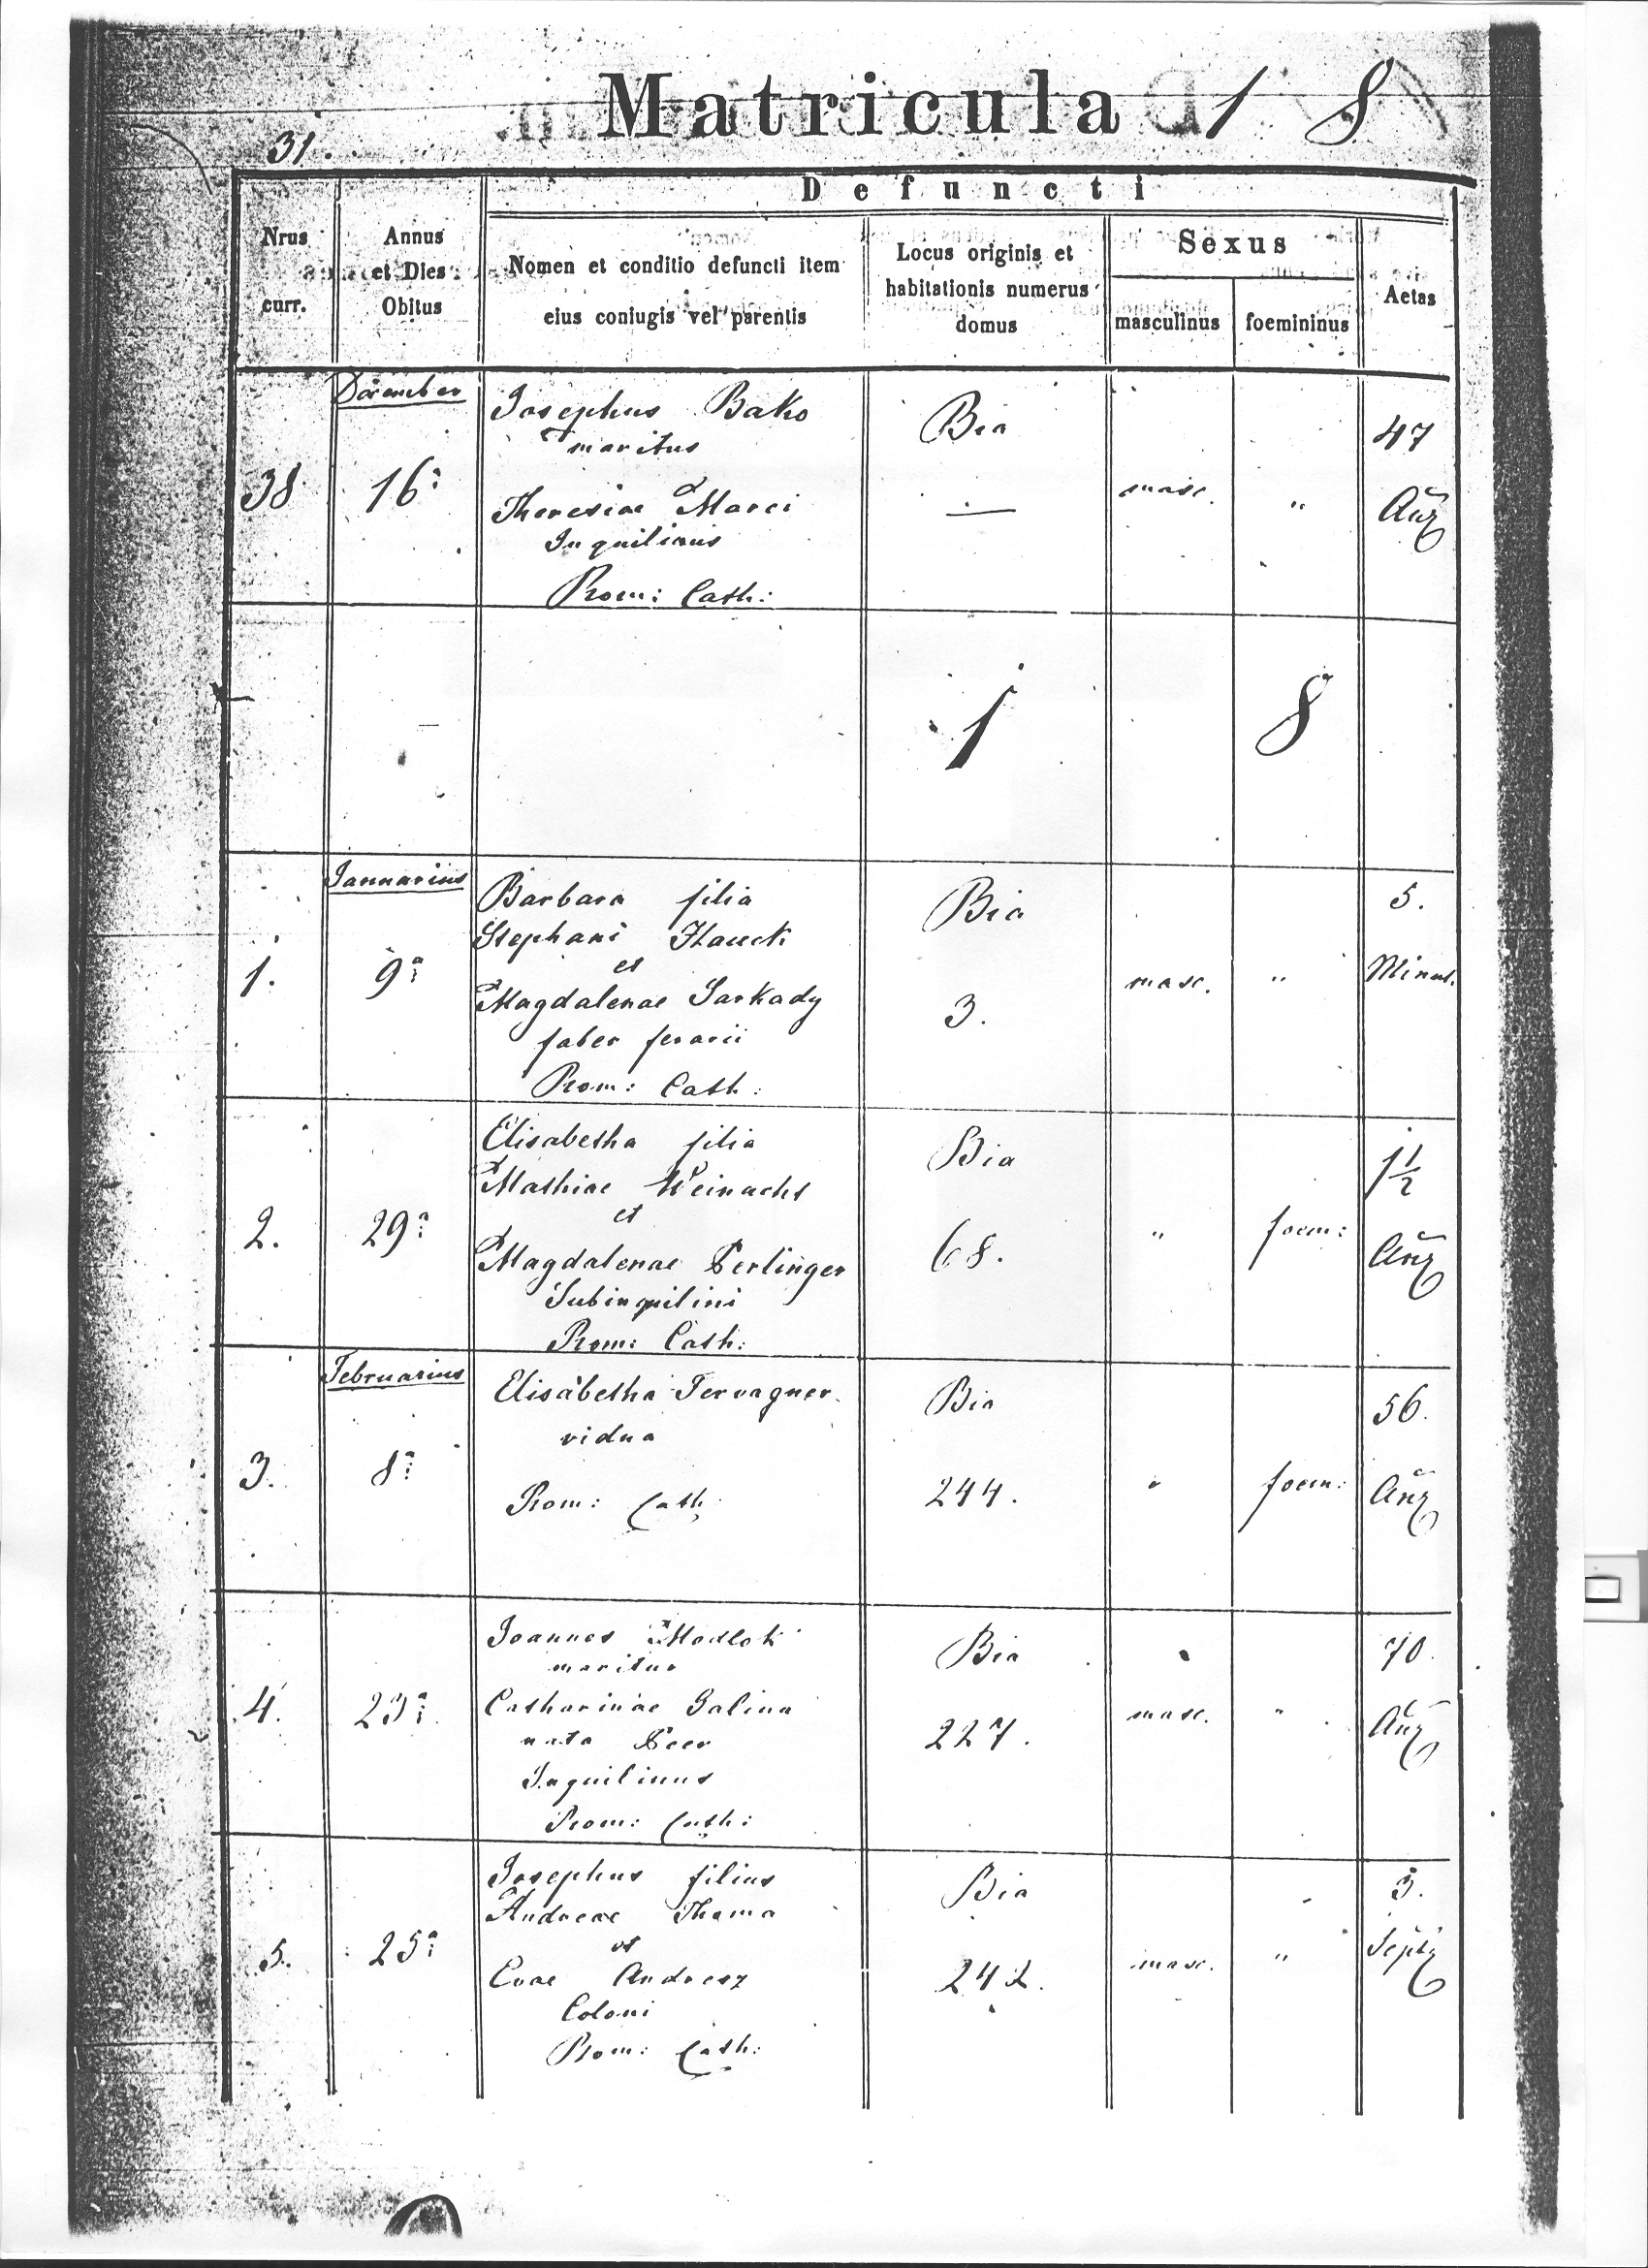 Matricula 1 8
31.
Defuncti
Nrus curr.
Annus et Dies Obitus
Nomen et conditio defuncti item eius coniugis vel parentis
Locus originis et habitationis numerus domus
Sexus
masculinus
foemininus
Aetas
December
38
16a
Josephus Bako
maritus
Theresiae Marci
Inquilinus
Rom: Cath:
Bia
—
masc.
"
47
Añ
1 8
Januarius
1.
9a
Barbara filia
Stephani Hauck
et
Magdalenae Sarkady
faber ferarii
Rom: Cath:
Bia
3.
masc.
"
5.
Minut.
2.
29a
Elisabetha filia
Mathiae Weinacht
et
Magdalenae Perlinger
Subinquilini
Rom: Cath:
Bia
68.
"
foem:
1 1/2
Añ
Februarius
3.
8a
Elisabetha Tervagner
vidua
Rom: Cath:
Bia
244.
"
foem:
56.
Añ
4.
23a
Joannes Modlok
maritus
Catharinae Galina
nata Peer
Inquilinus
Rom: Cath:
Bia
227.
masc.
"
70.
Añ
5.
25a
Josephus filius
Andreae Thoma
et
Evae Andresz
Coloni
Rom: Cath:
Bia
242.
masc.
"
3.
Sept